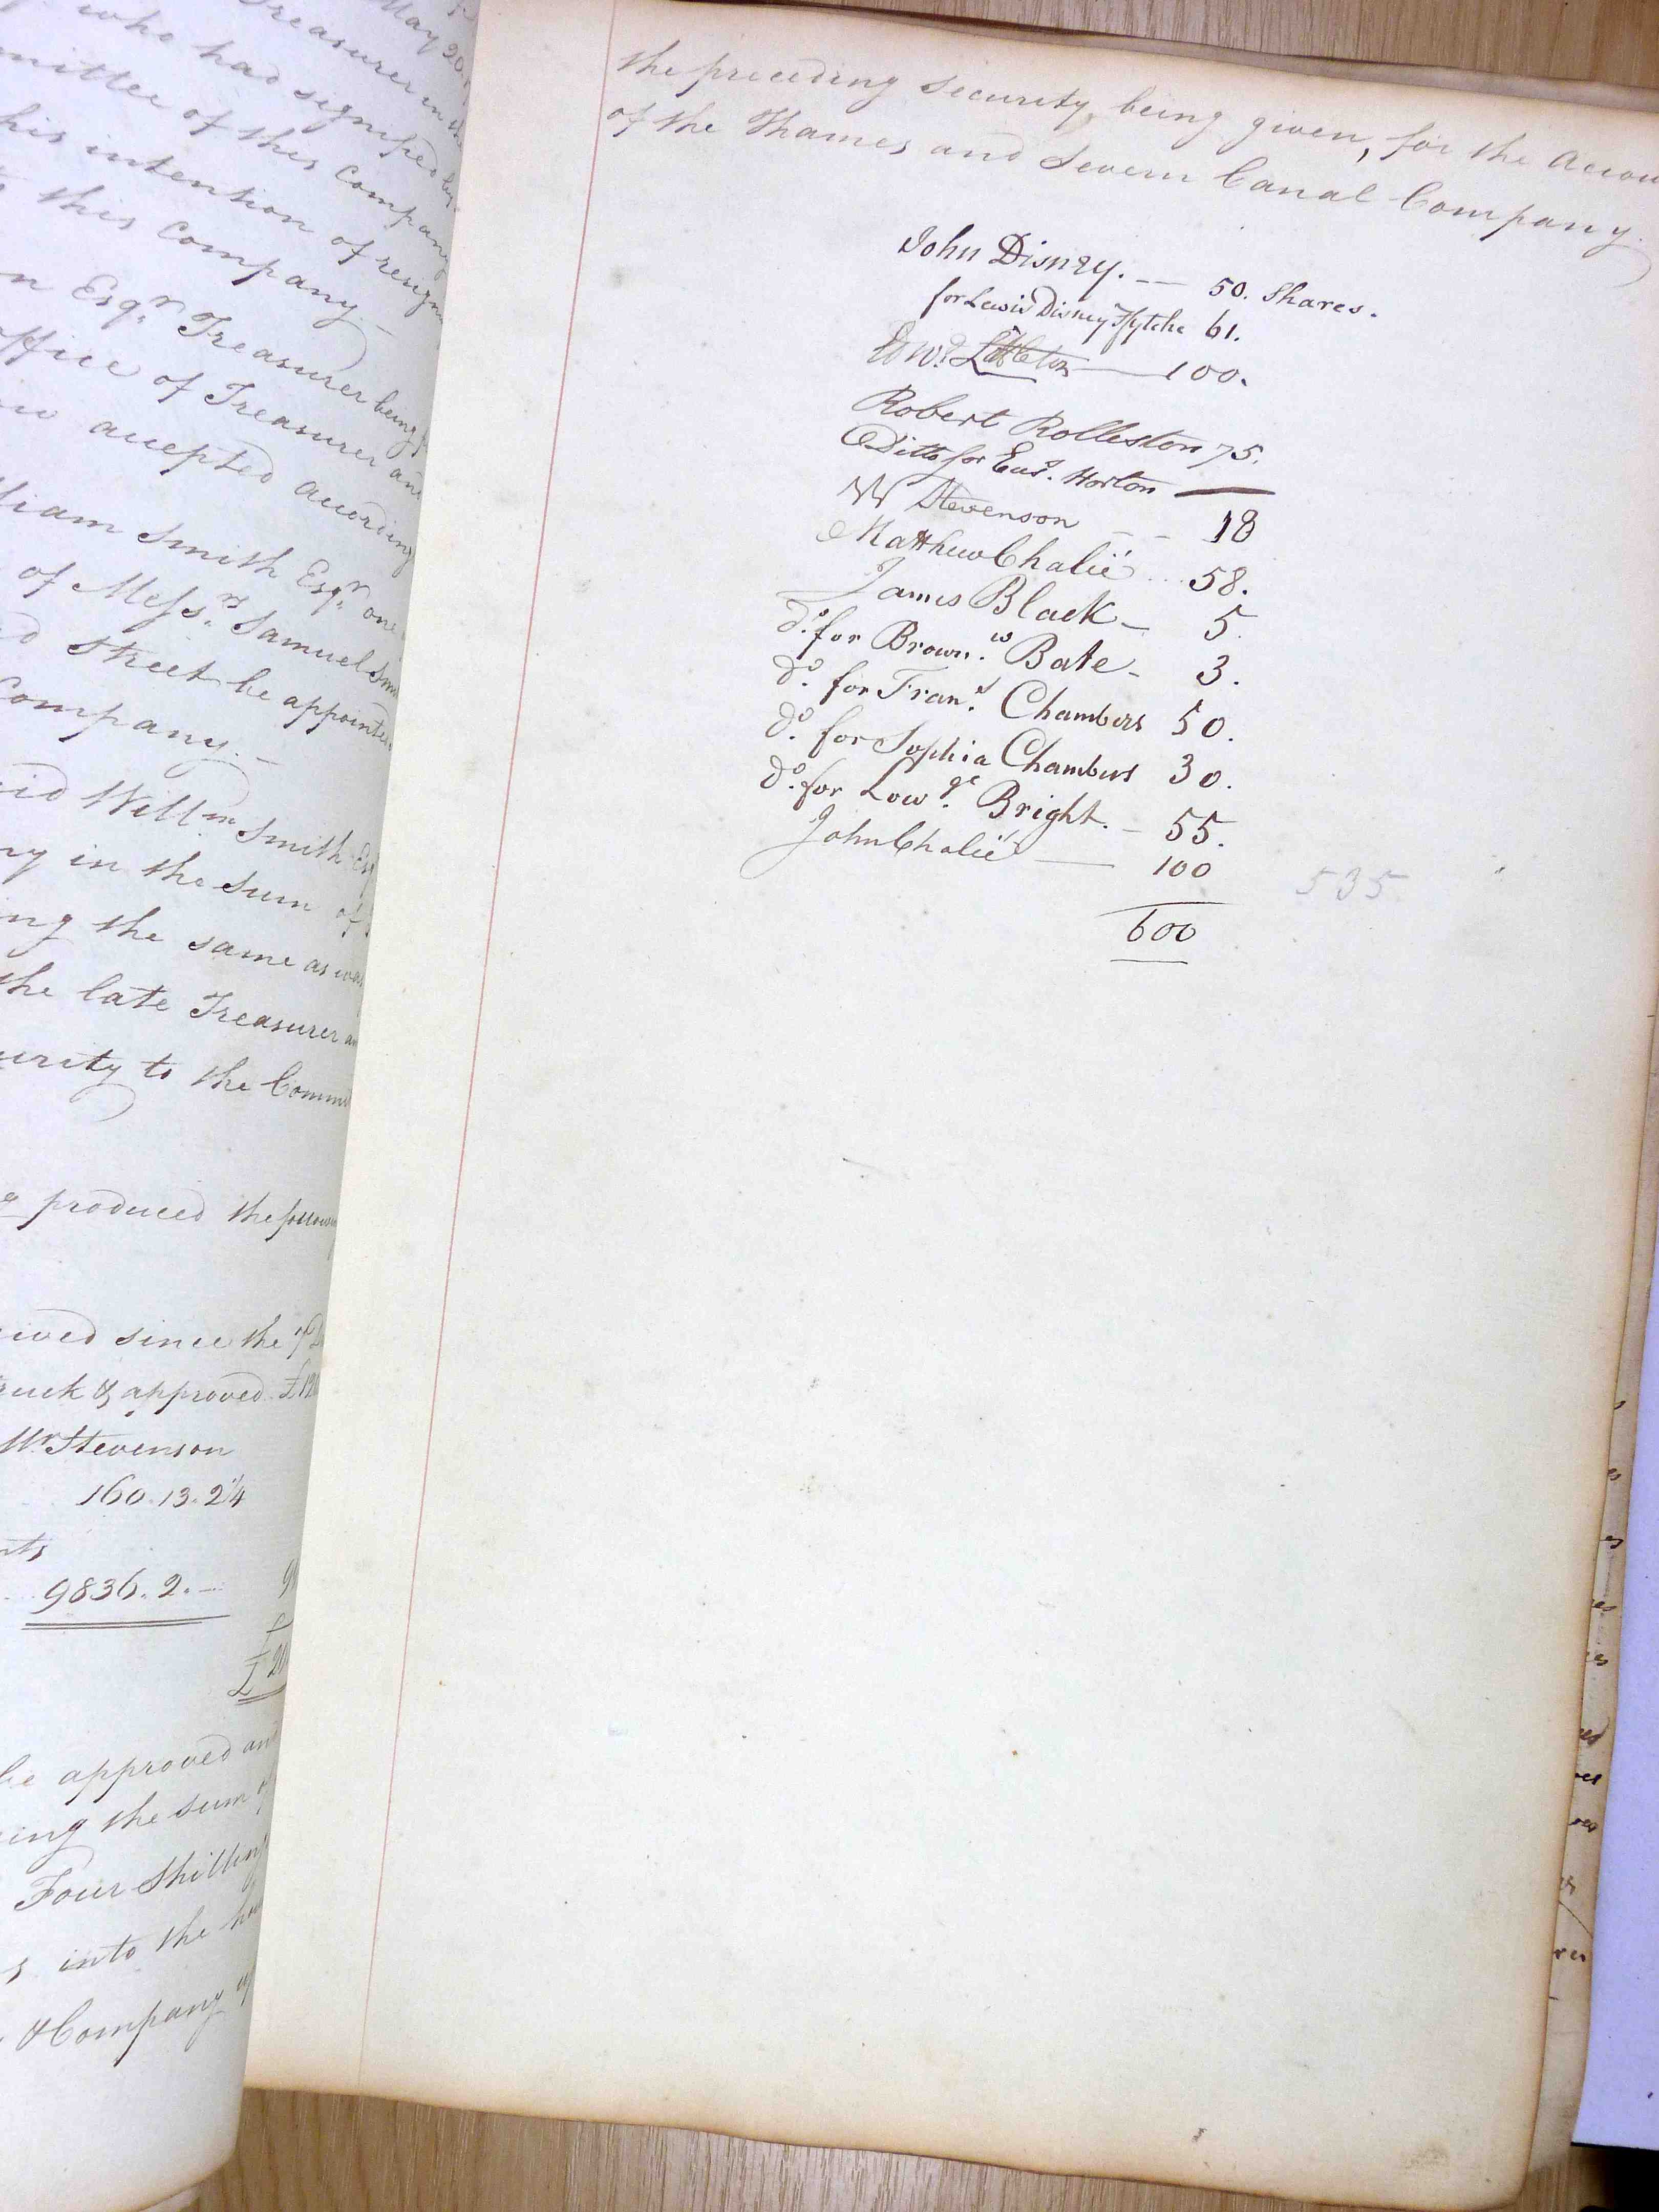 May 20
Treasurer in the
who had signified by
mittee of this Company
his intention of resign
this Company. —
n Esqr. Treasurer being
ffice of Treasurer and
accepted according
lliam Smith Esqr. one
of Messrs. Samuel Smi
d Street be appointed
Company. —
id Willm. Smith Esq
ry in the Sum of
ing the same as was
the late Treasurer an
urity to the Commi
produced the following
ived since the
uck & approved £
Mr Stevenson
160.13.2¼
nts
9836.2.—
£20
be approved and
ing the sum of
Four Shillings
s into the
& Company
the preceding Security being given, for the Accou
of the Thames and Severn Canal Company.
John Disney. — 50. Shares.
for Lewis Disney Ffytche 61.
Edwd. Littleton — 100.
Robert Rolleston 75.
Ditto for Eusb. Horton —
W Stevenson - - 18
Matthew Chalié ... 58.
James Black — 5.
Do. for Brownw. Bate - 3.
Do. for Frans. Chambers 50.
Do. for Sophia Chambers 30.
Do. for Lowge. Bright. - 55.
John Chalié — 100
535
600